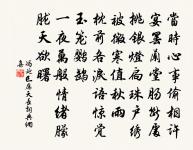 當時心事偷相許
宴罷蘭堂腸斷處
挑銀燈扃珠戶繡
被微寒值秋雨
枕前各淚語驚覺
玉籠鸚鵡
一夜萬般情緒朦
朧天欲曙
馮延巳應天長